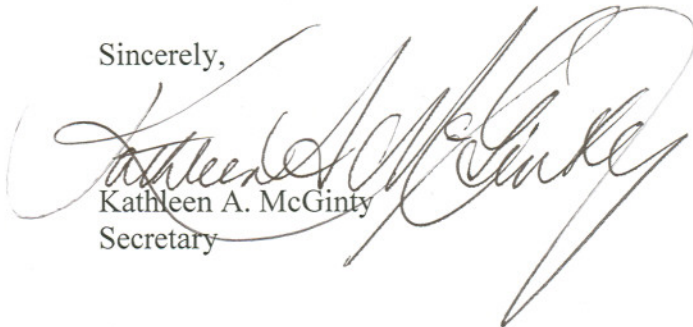 Sincerely,
Kathleen A. McGinty
Kathleen A. McGinty
Secretary